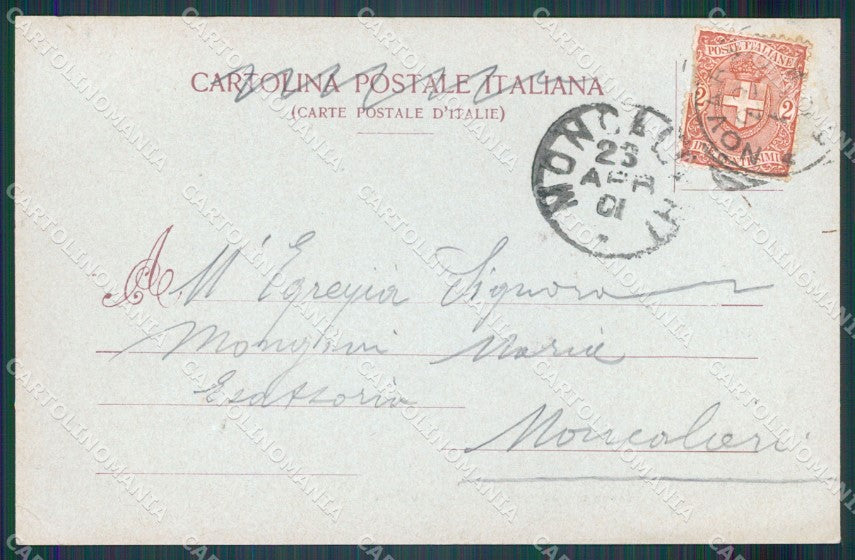 CARTOLINA POSTALE ITALIANA
(CARTE POSTALE D'ITALIE)
POSTE ITALIANE
2 2
MONCALIERI
23
APR
01
A M' Egregia Signora
Mongini Maria
Esattoria
Moncalieri
CARTOLINOMANIA